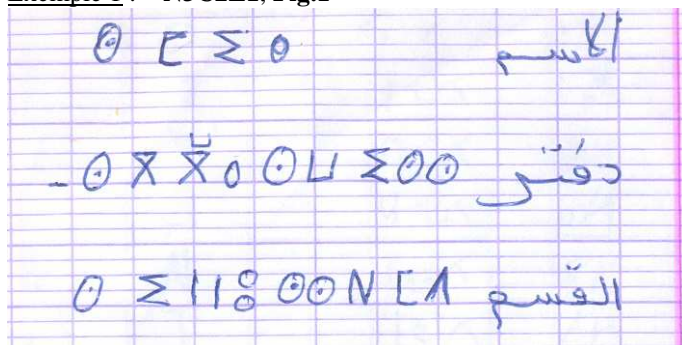 ⵙ ⵎ ⵉ ⵙ الاسم
- ⵙ ⴳ ⴳⵯ ⴰ ⵙ ⵡ ⵉ ⵙ ⵙ دفتر
ⵙ ⵉ ⵏ ⵏ ⵓ ⵙ ⵙ ⵍ ⵎ ⴷ القسم